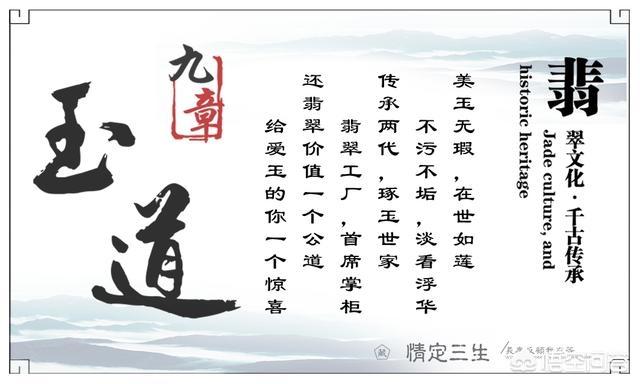 翡
翠文化·千古传承
Jade culture, and
historic heritage
美玉无瑕,在世如莲
不污不垢,淡看浮华
传承两代,琢玉世家
翡翠工厂,首席掌柜
还翡翠价值一个公道
给爱玉的你一个惊喜
九章
玉道
情定三生
悟空问答